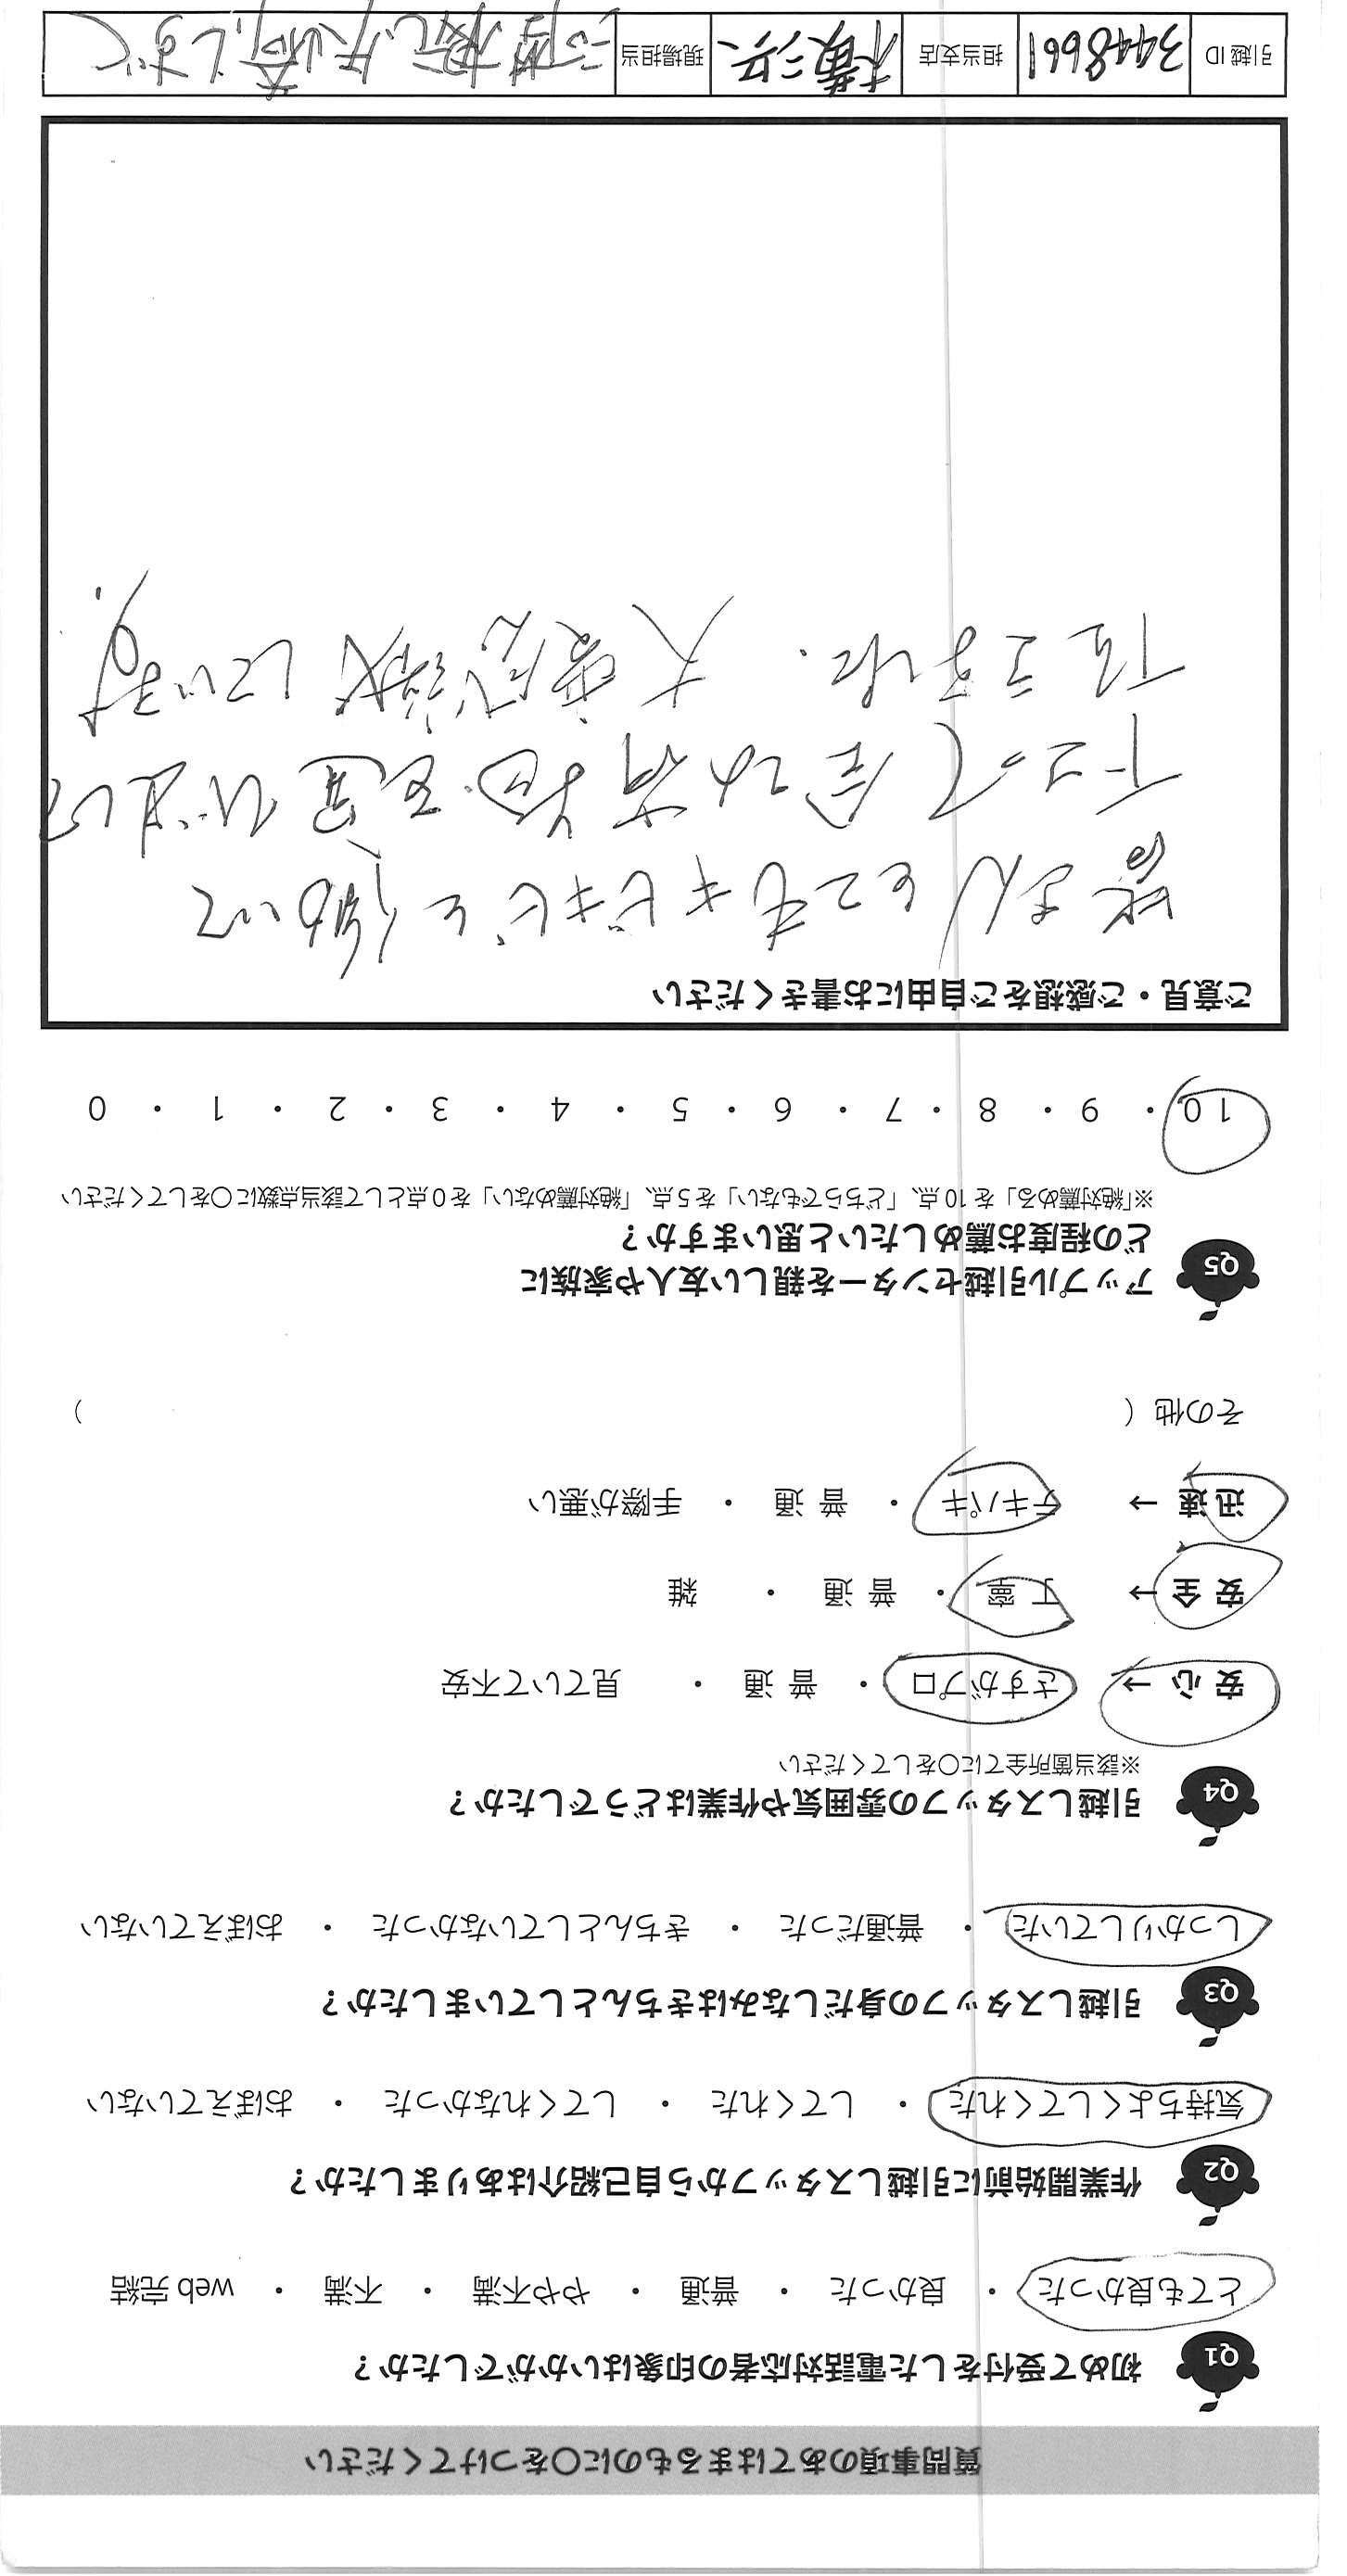 質問事項のあてはまるものに○をつけてください
Q1 初めて受付をした電話対応者の印象はいかがでしたか？
とても良かった ・ 良かった ・ 普通 ・ やや不満 ・ 不満 ・ web 完結
Q2 作業開始前に引越しスタッフから自己紹介はありましたか？
気持ちよくしてくれた ・ してくれた ・ してくれなかった ・ おぼえていない
Q3 引越しスタッフの身だしなみはきちんとしていましたか？
しっかりしていた ・ 普通だった ・ きちんとしていなかった ・ おぼえていない
Q4 引越しスタッフの雰囲気や作業はどうでしたか？
※該当箇所全てに○をしてください
安 心 → さすがプロ ・ 普 通 ・ 見ていて不安
安 全 → 丁 寧 ・ 普 通 ・ 雑
迅 速 → テキパキ ・ 普 通 ・ 手際が悪い
その他（ ）
Q5 アップル引越センターを親しい友人や家族に
どの程度お薦めしたいと思いますか？
※「絶対薦める」を 10 点、「どちらでもない」を 5 点、「絶対薦めない」を 0 点として該当点数に○をしてください
10 ・ 9 ・ 8 ・ 7 ・ 6 ・ 5 ・ 4 ・ 3 ・ 2 ・ 1 ・ 0
ご意見・ご感想をご自由にお書きください
皆さんとてもキビキビと働いて
下さって
ました。大変感謝しています。
引越 ID 3448661 担当支店 横浜 現場担当